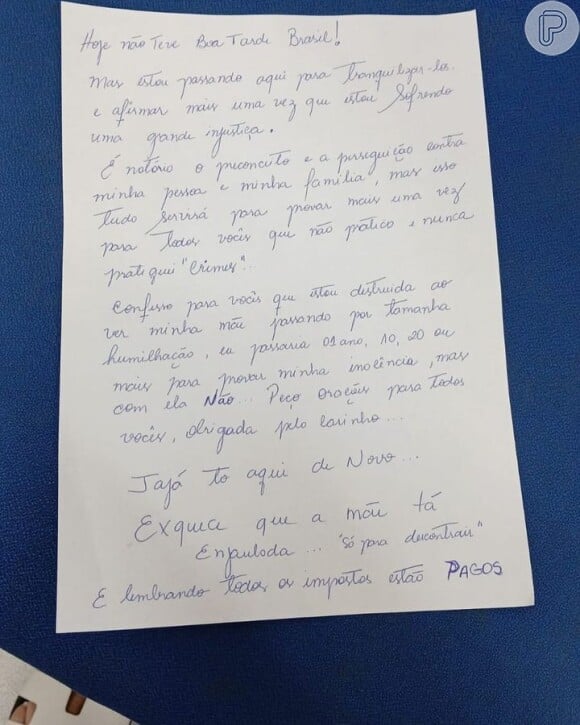 Hoje não Teve Boa Tarde Brasil!
Mas estou passando aqui para tranquilizar-los
e afirmar mais uma vez que estou sofrendo
uma grande injustiça.
É notório o preconceito e a perseguição contra
minha pessoa e minha família, mas isso
tudo servirá para provar mais uma vez
para todos vocês que não pratico e nunca
pratiquei "Crimes"..
Confesso para vocês que estou destruida ao
ver minha mãe passando por tamanha
humilhação, eu passaria 01 ano, 10, 20 ou
mais para provar minha inocência, mas
com ela Não... Peço orações para todos
vocês, obrigada pelo carinho...
Jajá to aqui de Novo...
Exquece que a mãe tá
Enjaulada... "Só para descontrair"
E lembrando todos os impostos estão PAGOS